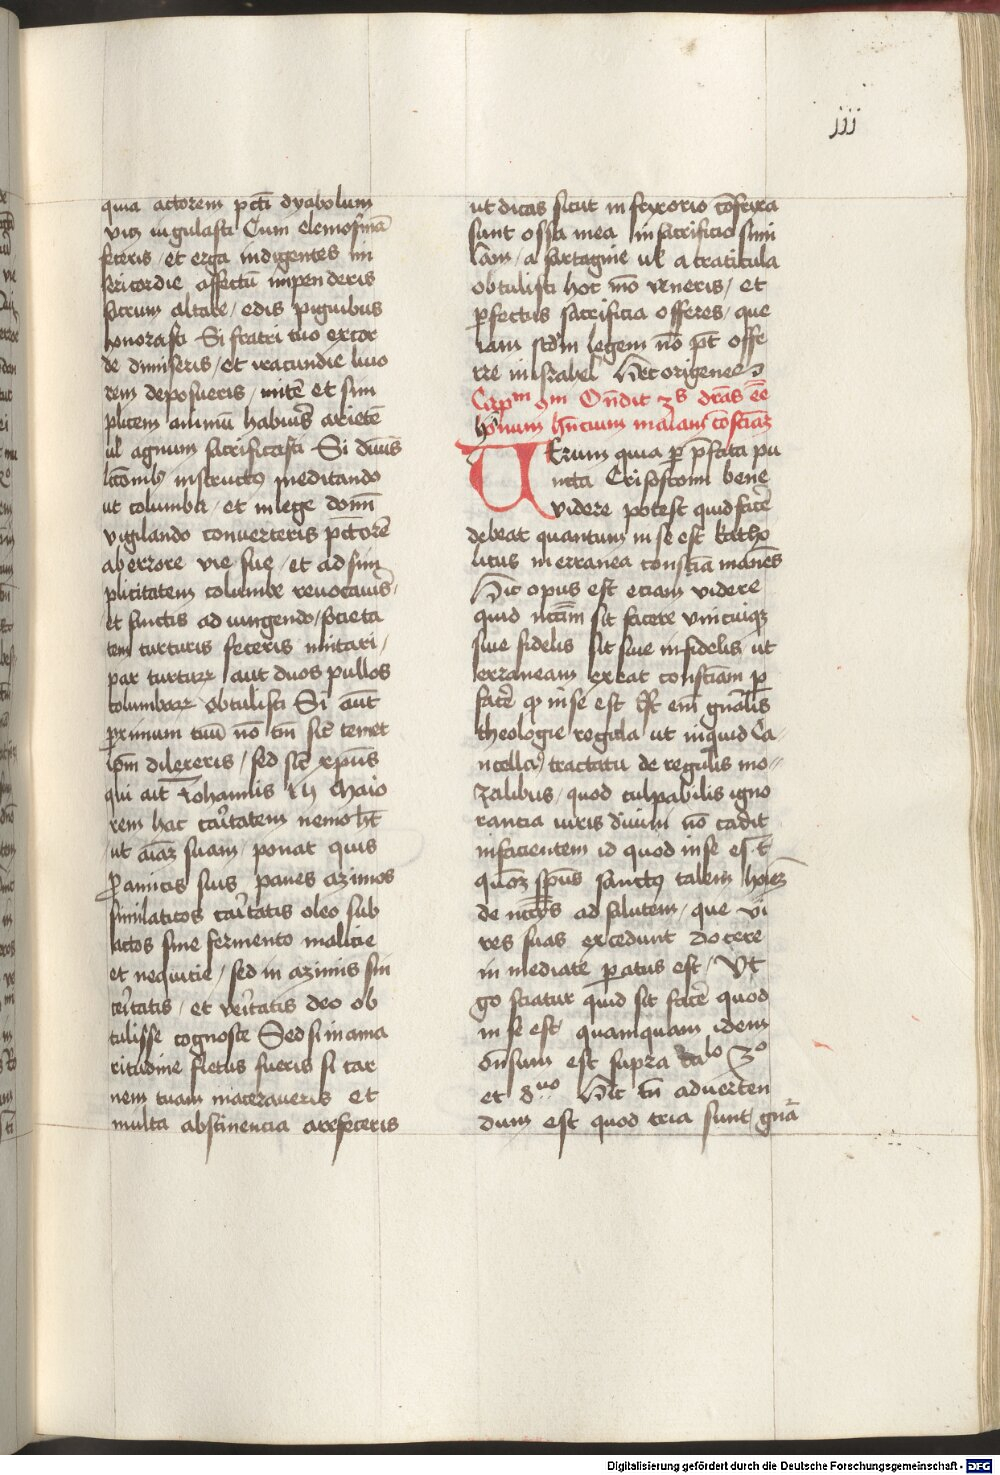 iij
quia actorem pcti dyabolum
iugulasti Cum elemosinā
feceris / et erga indigentes mi
sericordie affectū impenderis
sacrum altare / edis pinguibus
honorasti Si fratri tuo ex cor
de dimiseris / et iracundie liuo
rem deposueris / mitē et sim
plicem animū habueris arietē
ul agnum sacrificasti Si
instructus meditando
ut columba / et in lege domi
vigilando converteris pctorē
ab errore vie sue / et ad sim
plicitatem columbe revocaueris
et sanctis ad iungendo / societa
tem turturis feceris imitari /
par turturū aut duos pullos
columbarū obtulisti Si aūt
proximum tuū nō tm̄ sic̄ temet
ip̄m dilexeris / sed sic̄ xp̄us
qui ait Johannis Maio
rem hac caritatem nemo ht̄
ut aīaz suam / ponat quis
pro amicis suis panes azimos
similaticos caritatis oleo sub
actos sine fermento malicie
et nequicie / sed in azimis sin
ceritatis / et veritatis deo ob
tulisse cognosce Sed si in ama
ritudine fletus fueris si car
nem tuam maceraueris et
multa abstinencia arefeceris
ut dicas sicut in frixorio cōfrixa
sunt ossa mea in sacrificio simi
lam / a sartagine ul a craticula
obtulisti hoc mō veneris / et
perfectus sacrificia offeres / que
iam scdm legem nō pt̄ offe
rre in israhel Hec origenes
Capm Ondit dr̄as ēē
hoīnum hn̄cium malam cōsciāz
Uerum quia per pr̄fata pu
ncta Crisostomi bene
videre potest quid facē
debeat quantum in se est katho
licus in erranea consciā manēs
Hic opus est eciam videre
quid sit facere unicuiqz
siue fidelis sit siue infidelis ut
erraneam exeat consciam per
facē q in se est Est em gnalis
theologie regula ut inquid Ca
ncella tractatu de regulis mo
ralibus / quod culpabilis igno
rancia iuris diuini nō cadit
in facientem id quod in se est
sp̄us sanctus talem
de ad salutem / que vi
res suas excedunt docere
in mediate paratus est / Ut
go sciatur quid sit facē quod
in se est / quamquam idem
onsum est supra
et Hic tn̄ aduerten
dum est quod tria sunt gn̄a
Digitalisierung gefördert durch die Deutsche Forschungsgemeinschaft - DFG